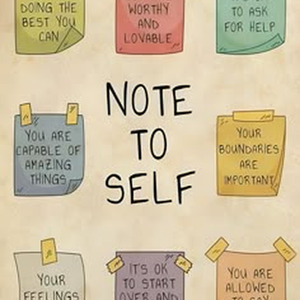 DOING THE
BEST YOU
CAN
WORTHY
AND
LOVABLE
TO ASK
FOR HELP
NOTE
TO
SELF
YOU ARE
CAPABLE OF
AMAZING
THINGS
YOUR
BOUNDARIES
ARE
IMPORTANT
YOUR
FEELINGS
IT'S OK
TO START
OVER AND
YOU ARE
ALLOWED
TO SAY